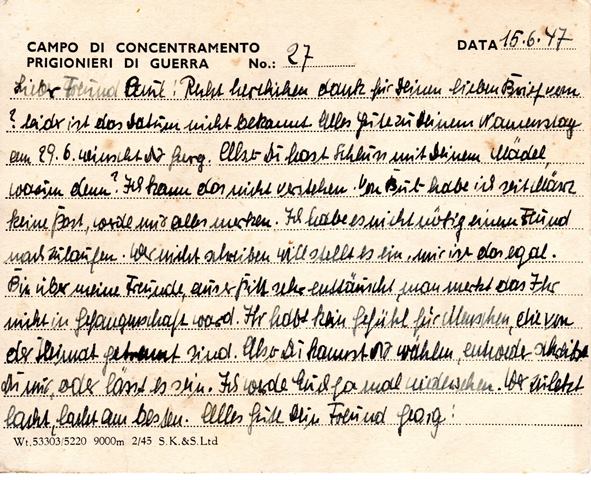 CAMPO DI CONCENTRAMENTO
PRIGIONIERI DI GUERRA No.: 27
DATA 15.6.47
Lieber Freund Paul! Recht herzlichen dank für Deinen lieben Brief vom
? leider ist das datum nicht bekannt. Alles Gute zu Deinem Namenstag
am 29.6. wünscht Dir Georg. Also Du hast Schluss mit Deinem Mädel,
warum denn? Ich kann das nicht verstehen. Von habe ich seit März
keine Post, werde mir alles merken. Ich habe es nicht nötig einem Freund
nachzulaufen. Wer nicht schreiben will stellt es ein, mir ist das egal.
Bin über meine Freunde, sehr enttäuscht, man merkt das Ihr
nicht in Gefangenschaft ward. Ihr habt kein Gefühl für Menschen, die von
der Heimat getrennt sind. Also Du kannst Dir wählen, entweder schreibst
Du mir, oder lässt es sein. Ich werde Euch ja mal wiedersehen. Wer zuletzt
lacht, lacht am besten. Alles Gute Dein Freund Georg!
Wt.53303/5220 9000m 2/45 S.K.&S.Ltd